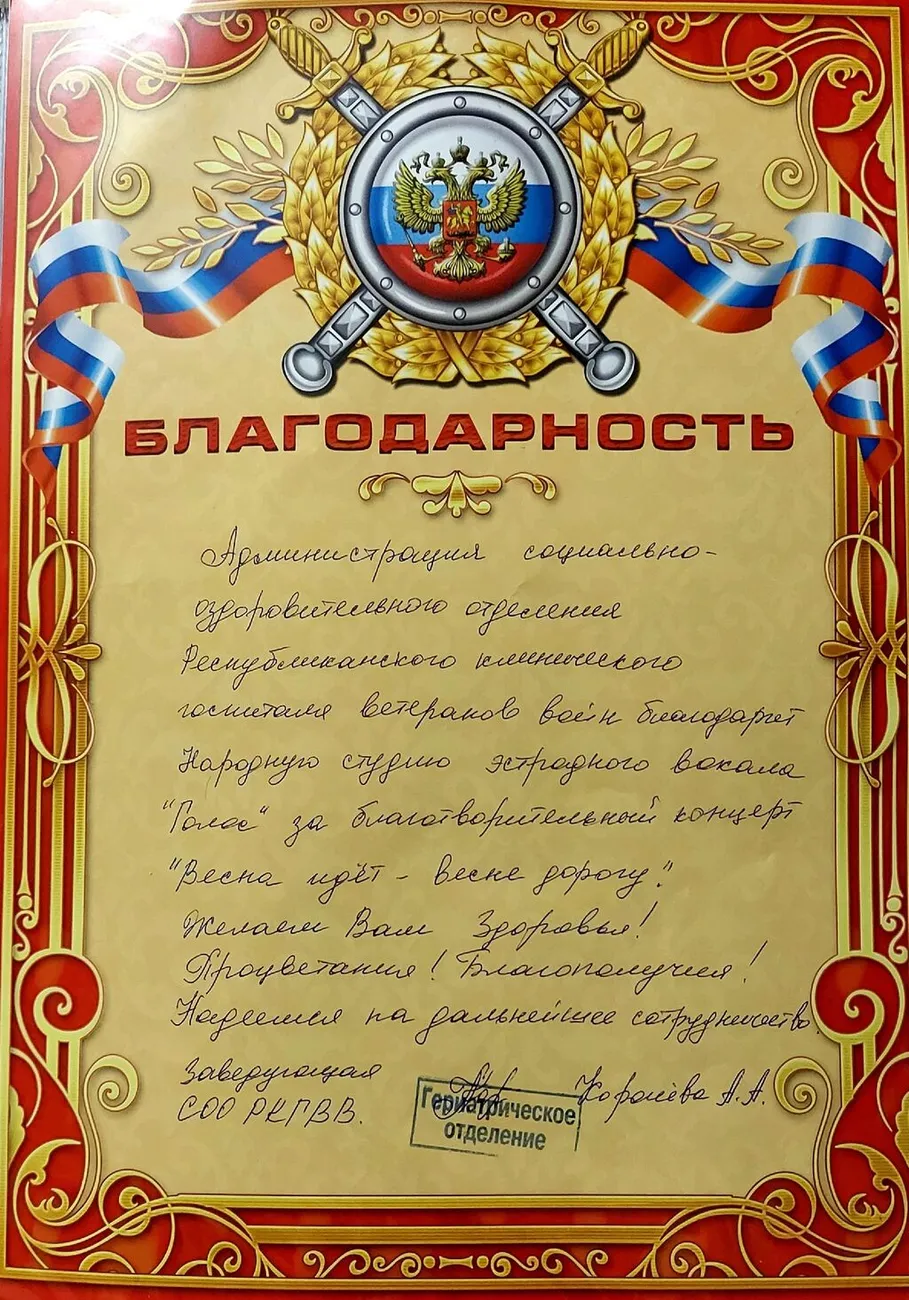 БЛАГОДАРНОСТЬ
Администрация социально-
оздоровительного отделения
Республиканского клинического
госпиталя ветеранов войн благодарит
Народную студию эстрадного вокала
"Голос" за благотворительный концерт
"Весна идёт - весне дорогу".
Желаем Вам Здоровья!
Процветания! Благополучия!
Надеемся на дальнейшее сотрудничество.
Заведующая
СОО РКГВВ. А.А.
Гериатрическое
отделение